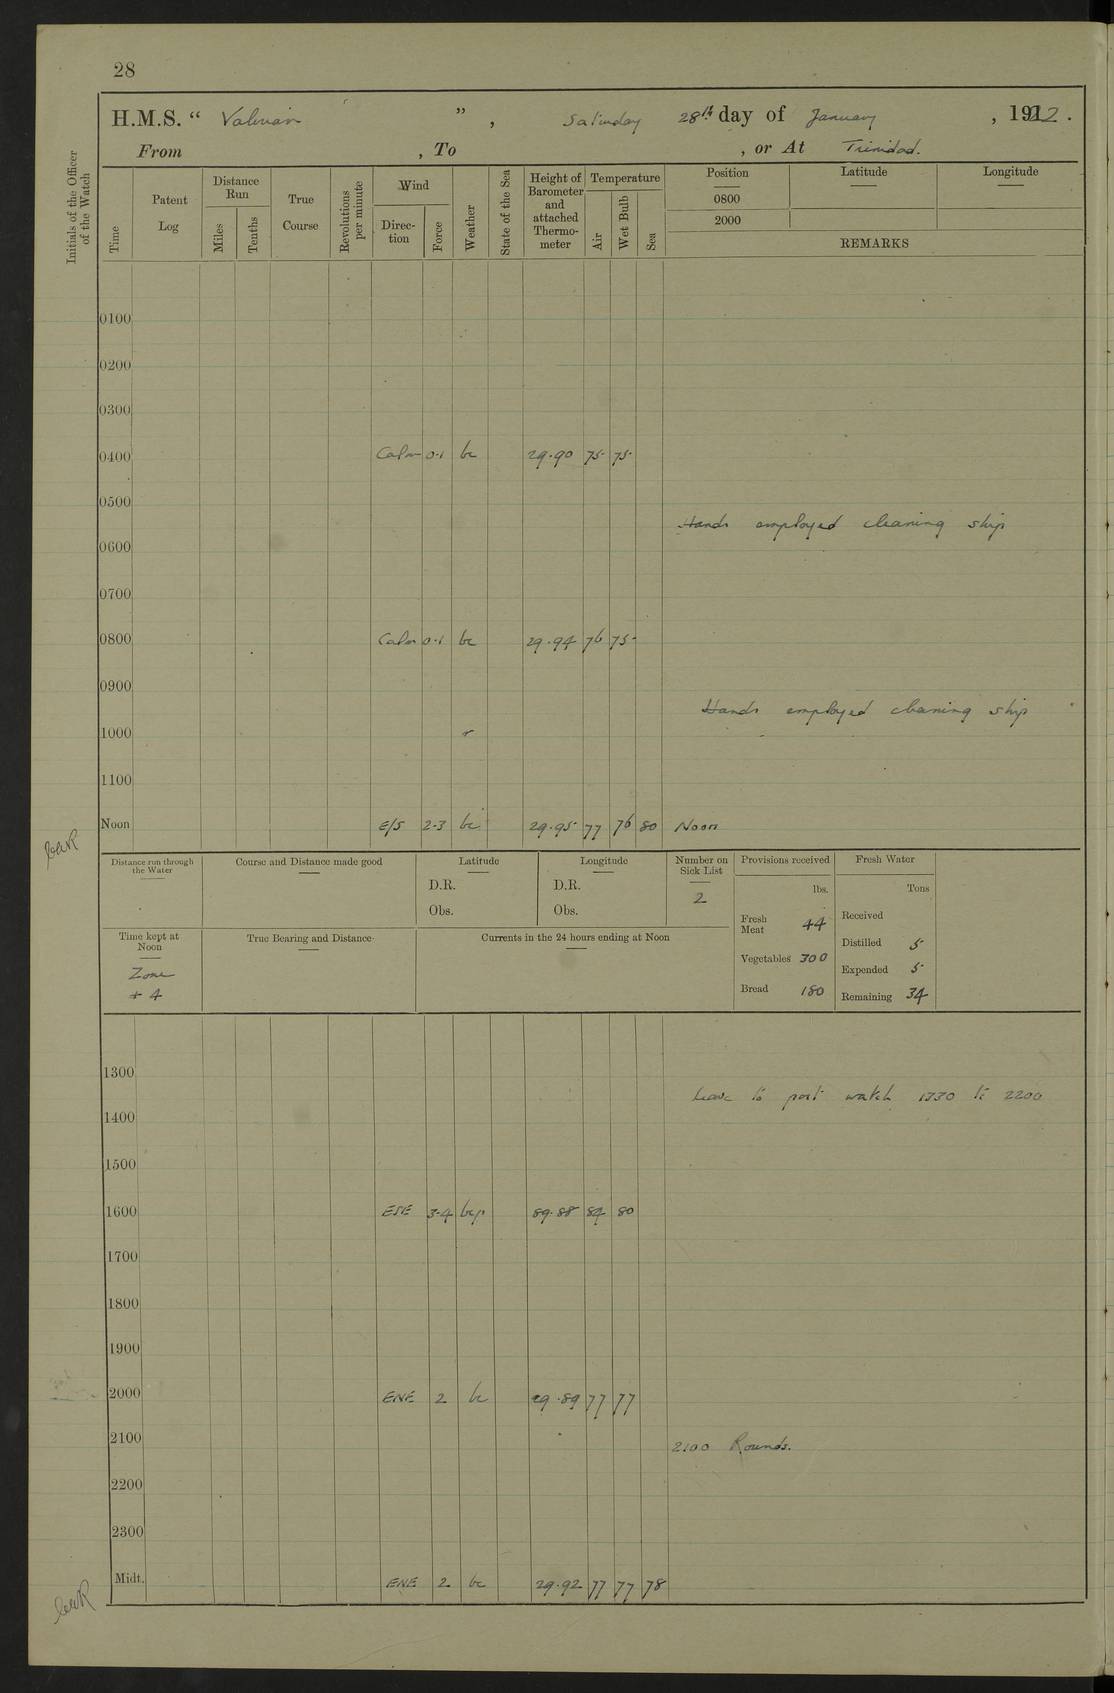 28
H.M.S. “ Valerian ”, Saturday 28th day of January, 1922.
From , To , or At Trinidad.
Initials of the Officer of the Watch
Time Patent Log Distance Run Miles Tenths True Course Revolutions per minute Wind Direction Force Weather State of the Sea Height of Barometer and attached Thermometer Temperature Air Wet Bulb Sea Position 0800 2000 Latitude Longitude
REMARKS
0100
0200
0300
0400 Calm 0-1 bc 29.90 75 75
0500
Hands employed cleaning ship
0600
0700
0800 Calm 0-1 bc 29.94 76 75
0900
Hands employed cleaning ship
1000
1100
Noon E/S 2-3 bc 29.95 77 76 80 Noon
Distance run through the Water Course and Distance made good Latitude Longitude Number on Sick List Provisions received Fresh Water
D.R. D.R. 2 lbs. Tons
Obs. Obs. Fresh Meat 44 Received
Time kept at Noon True Bearing and Distance Currents in the 24 hours ending at Noon Distilled 5
Zone Vegetables 300 Expended 5
+ 4 Bread 180 Remaining 34
1300
Leave to port watch 1330 to 2200
1400
1500
1600 ESE 3-4 bcp 89.88 84 80
1700
1800
1900
2000 ENE 2 bc 29.89 77 77
2100 2100 Rounds.
2200
2300
Midt. ENE 2 bc 29.92 77 77 78